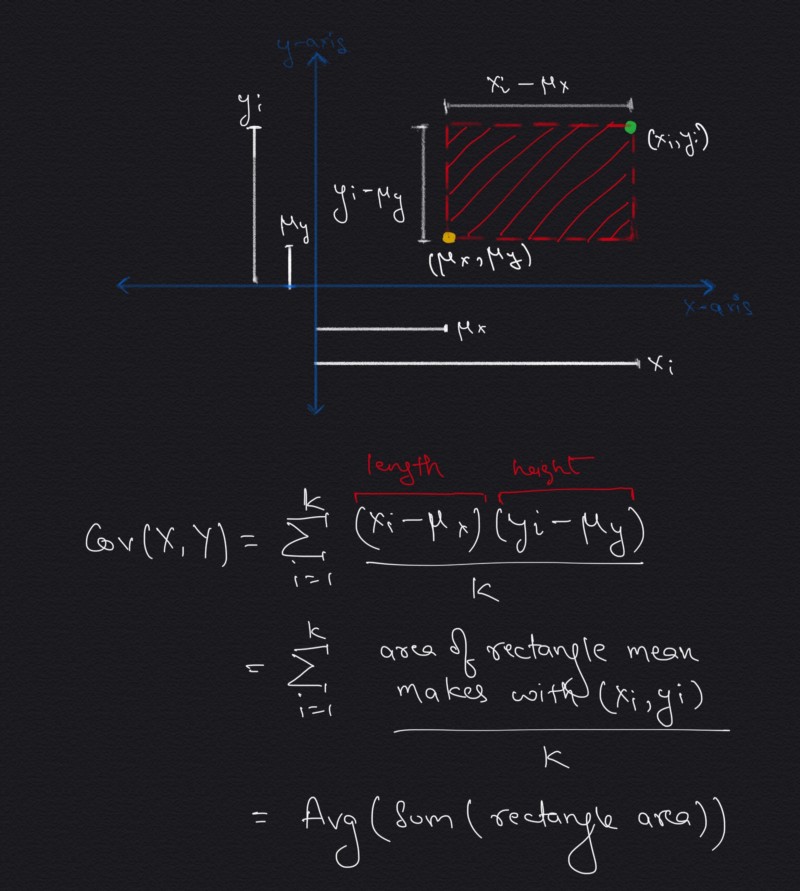 y-axis
xi − μx
yi
(xi, yi)
yi − μy
μy
(μx, μy)
x-axis
μx
xi
length height
Cov(X, Y) = k ∑ i=1 (xi − μx)(yi − μy)
k
= k ∑ i=1 area of rectangle mean
makes with (xi, yi)
k
= Avg(Sum(rectangle area))